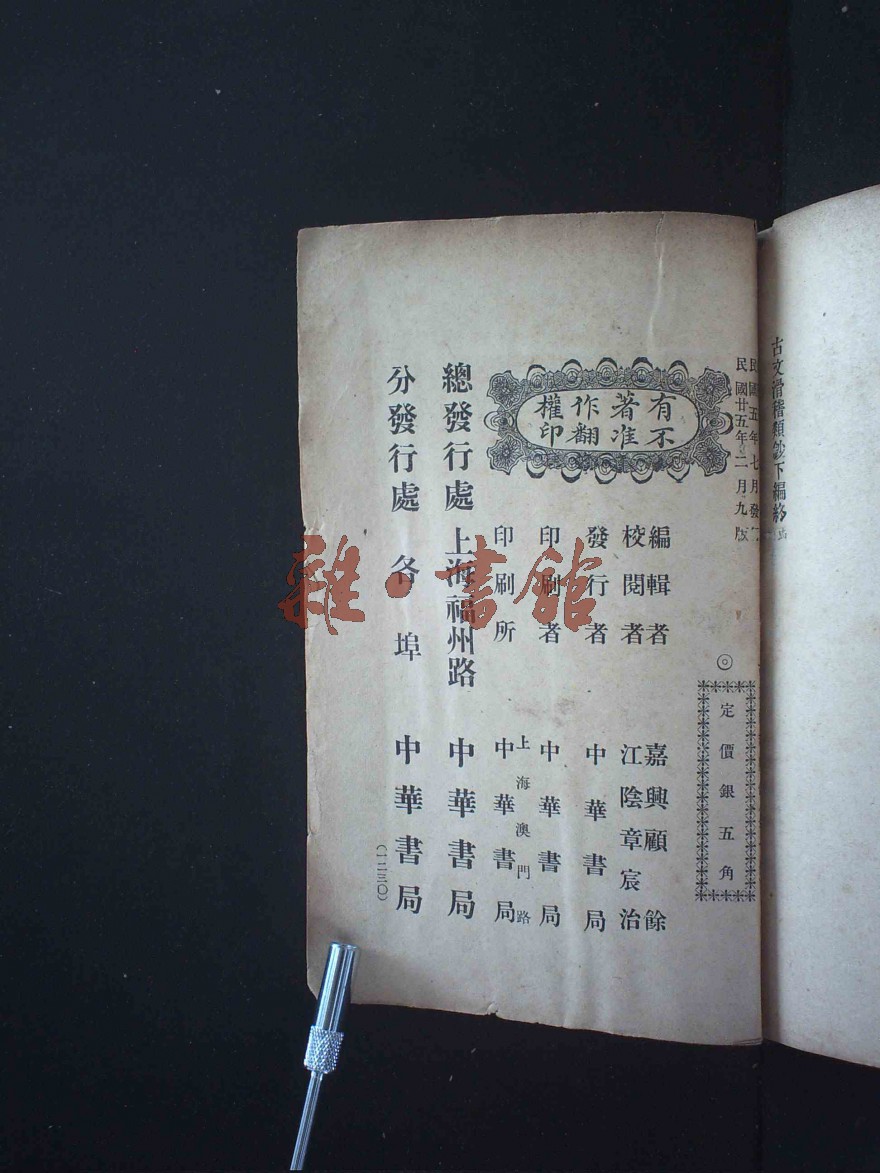 古文滑稽類鈔下編終
民國五年七月發行
民國廿五年二月九版
◎
定價銀五角
有著作權
不准翻印
編輯者 嘉興顧餘
校閱者 江陰章宸治
發行者 中華書局
印刷者 中華書局
印刷所 上海澳門路 中華書局
總發行處 上海福州路 中華書局
分發行處 各埠 中華書局
(一二三〇)
雜·書館